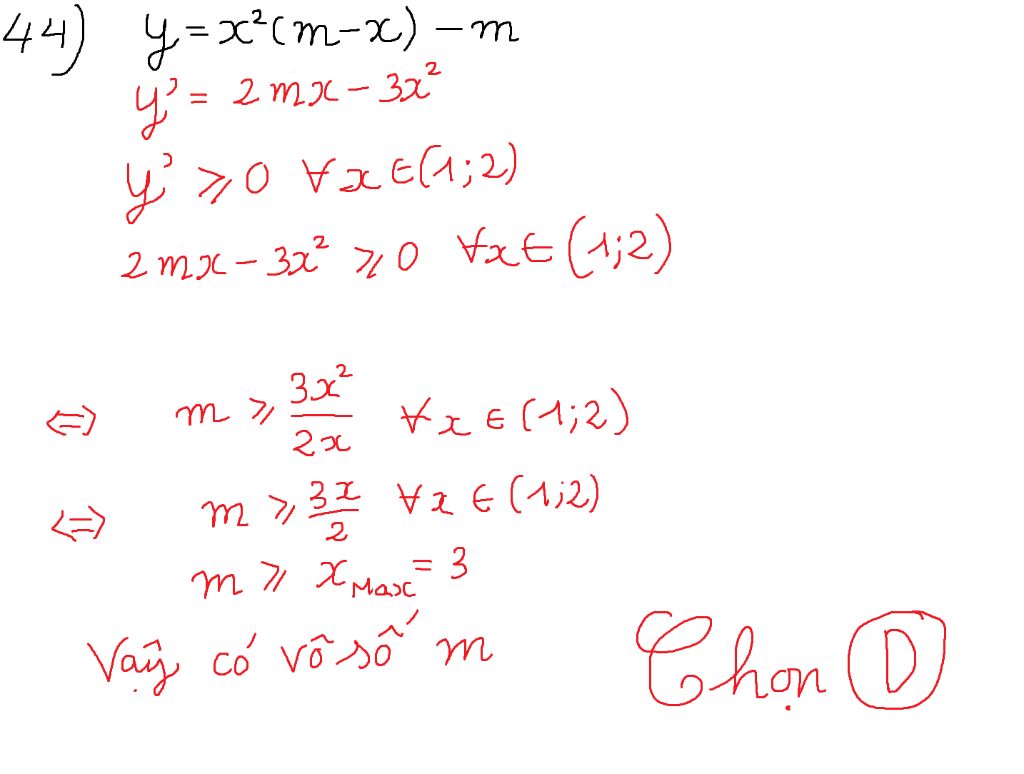 44) y = x²(m-x) - m
y' = 2mx - 3x²
y' ⩾ 0 ∀x ∈ (1;2)
2mx - 3x² ⩾ 0 ∀x ∈ (1;2)
⇔ m ⩾ 3x²/2x ∀x ∈ (1;2)
⇔ m ⩾ 3x/2 ∀x ∈ (1;2)
m ⩾ x Max = 3
Vậy có vô số m
Chọn D